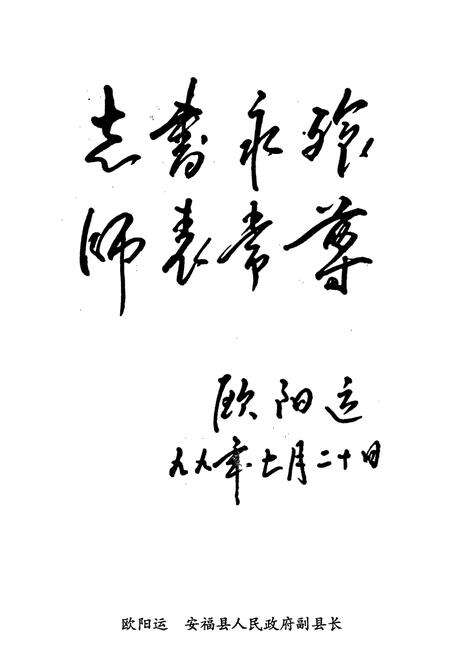 志书永飨
师表常尊
欧阳运
九九年七月二十日
欧阳运 安福县人民政府副县长